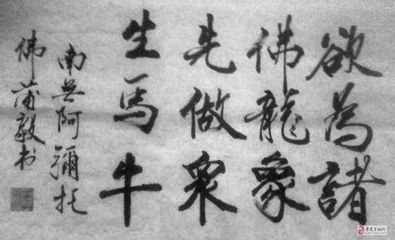 欲為諸
佛龍象
先做衆
生馬牛
南無阿彌托
佛 蒲毅书